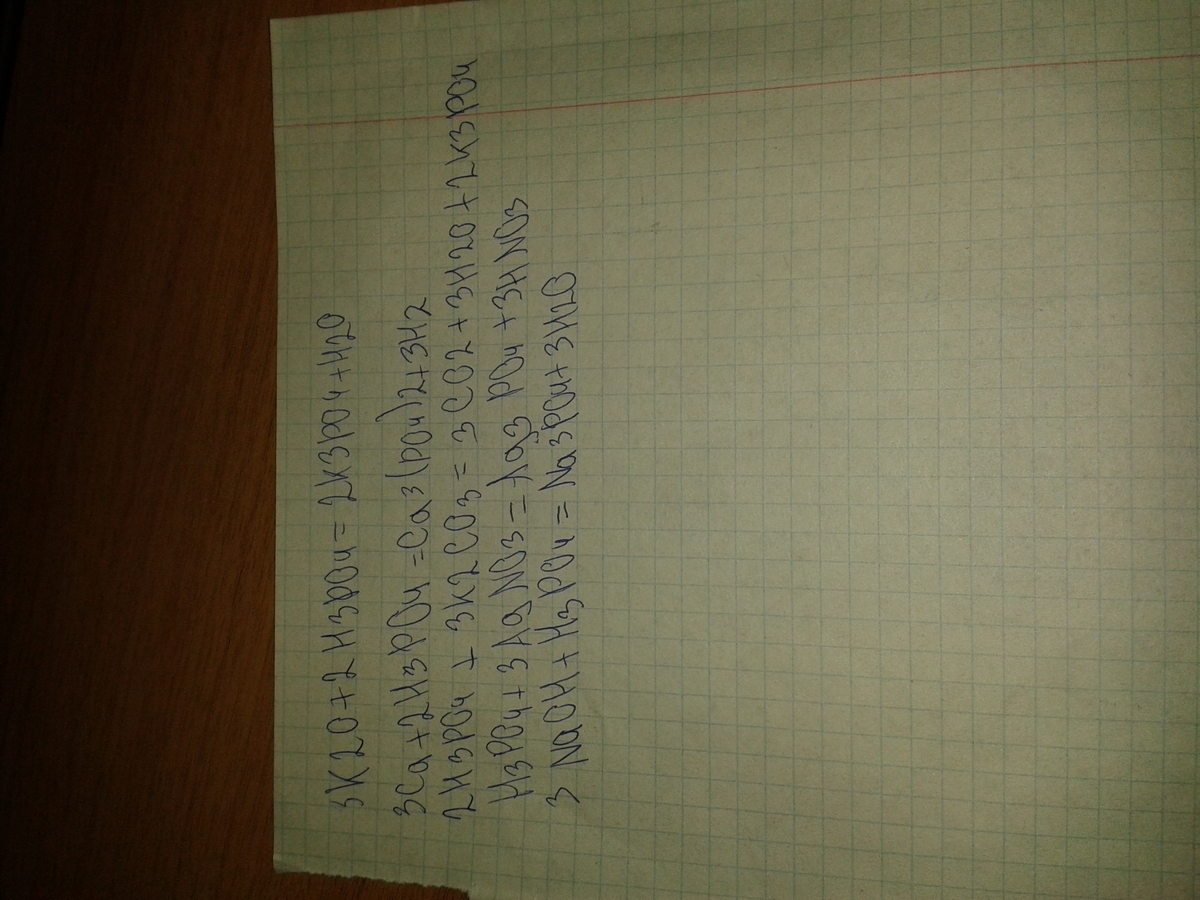 3K2O+2H3PO4=2K3PO4+H2O
3Ca+2H3PO4=Ca3(PO4)2+3H2
2H3PO4+3K2CO3=3CO2+3H2O+2K3PO4
H3PO4+3AgNO3=Ag3PO4+3HNO3
3NaOH+H3PO4=Na3PO4+3H2O